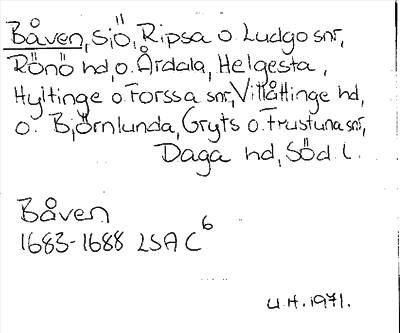 Båven, sjö, Ripsa o. Ludgo snr,
Rönö hd, o. Årdala, Helgesta,
Hyltinge o Forssa snr, Villåttinge hd,
o. Björnlunda, Gryts o. Frustuna snr,
Daga hd, Söd. l.
Båven
1683-1688 LSA C6
U.H. 1971.